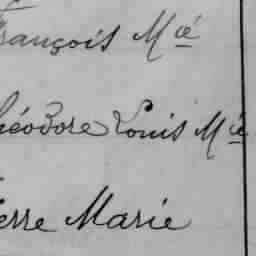 rançois M^ié
héodore Louis M^ie
erre Marie